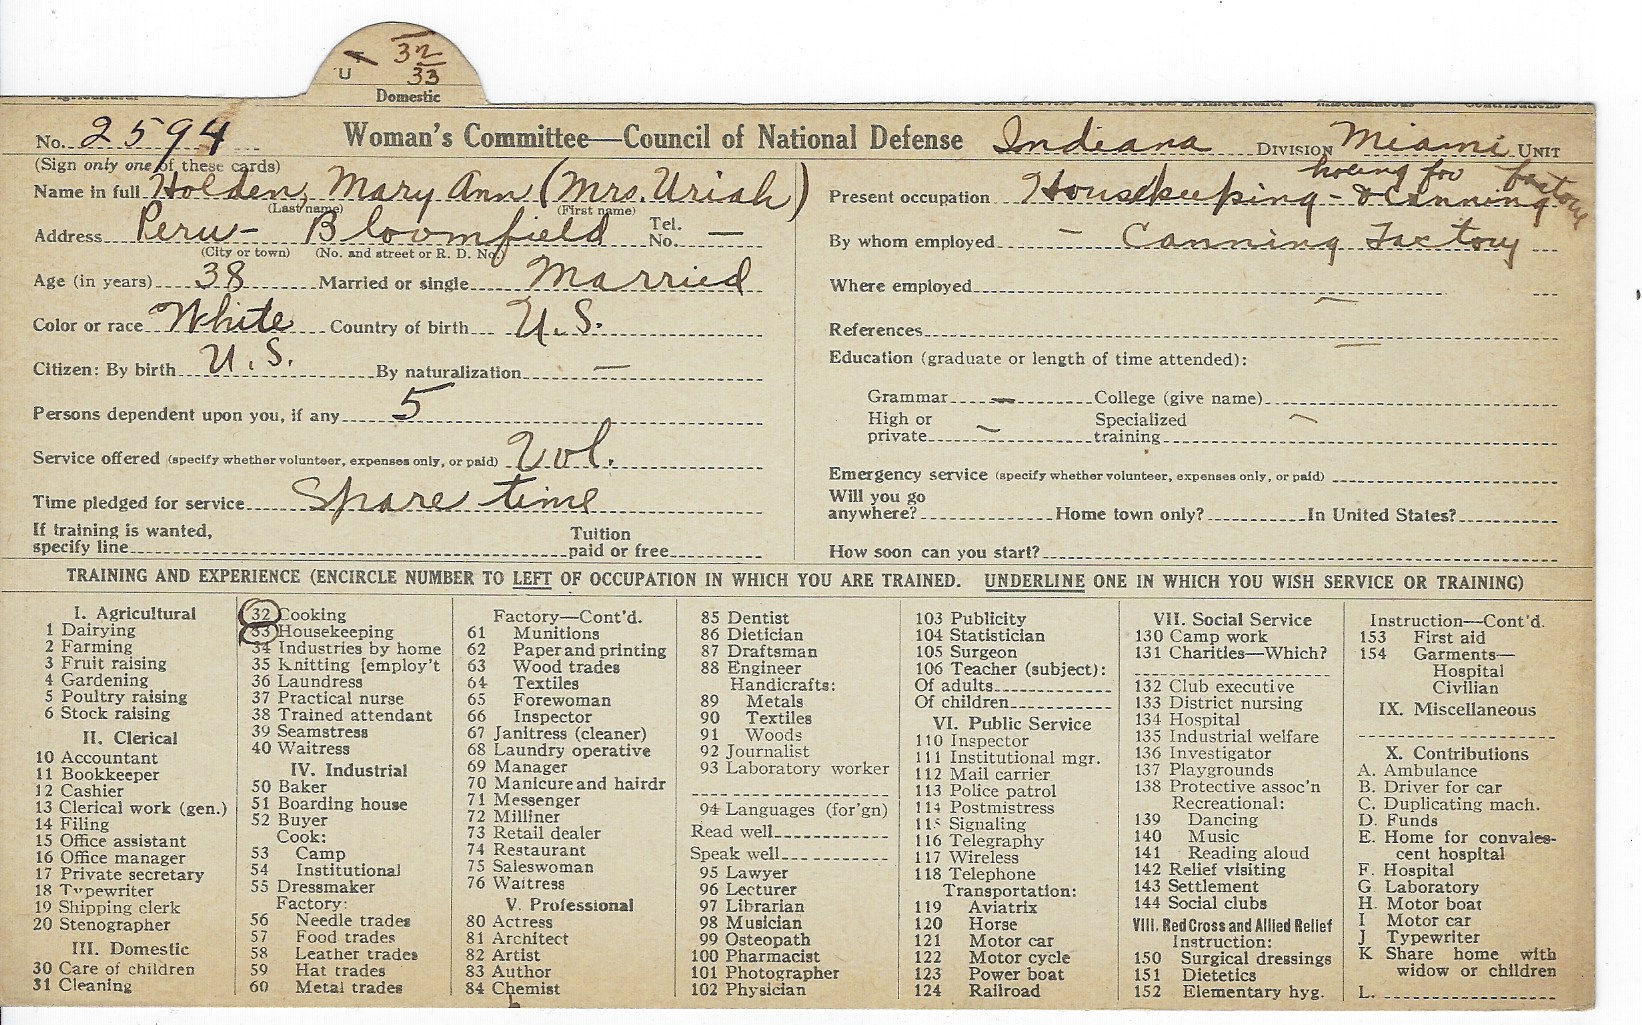 32
U 33
Domestic
No. 2594 Woman's Committee—Council of National Defense Indiana DIVISION Miami UNIT
(Sign only one of these cards)
Name in full Holden, Mary Ann (Mrs. Uriah)
(Last name) (First name)
Address Peru - Bloomfield Tel. No. —
(City or town) (No. and street or R. D. No.)
Age (in years) 38 Married or single Married
Color or race White Country of birth U.S.
Citizen: By birth U.S. By naturalization —
Persons dependent upon you, if any 5
Service offered (specify whether volunteer, expenses only, or paid) Vol.
Time pledged for service Spare time
If training is wanted,
specify line Tuition paid or free
hoeing for factory
Present occupation Housekeeping - & Canning
By whom employed - Canning Factory
Where employed —
References —
Education (graduate or length of time attended):
Grammar — College (give name)
High or private — Specialized training —
Emergency service (specify whether volunteer, expenses only, or paid)
Will you go
anywhere? Home town only? In United States?
How soon can you start?
TRAINING AND EXPERIENCE (ENCIRCLE NUMBER TO LEFT OF OCCUPATION IN WHICH YOU ARE TRAINED. UNDERLINE ONE IN WHICH YOU WISH SERVICE OR TRAINING)
I. Agricultural
1 Dairying
2 Farming
3 Fruit raising
4 Gardening
5 Poultry raising
6 Stock raising
II. Clerical
10 Accountant
11 Bookkeeper
12 Cashier
13 Clerical work (gen.)
14 Filing
15 Office assistant
16 Office manager
17 Private secretary
18 Typewriter
19 Shipping clerk
20 Stenographer
III. Domestic
30 Care of children
31 Cleaning
32 Cooking
33 Housekeeping
34 Industries by home
35 Knitting [employ't
36 Laundress
37 Practical nurse
38 Trained attendant
39 Seamstress
40 Waitress
IV. Industrial
50 Baker
51 Boarding house
52 Buyer
Cook:
53 Camp
54 Institutional
55 Dressmaker
Factory:
56 Needle trades
57 Food trades
58 Leather trades
59 Hat trades
60 Metal trades
Factory—Cont'd.
61 Munitions
62 Paper and printing
63 Wood trades
64 Textiles
65 Forewoman
66 Inspector
67 Janitress (cleaner)
68 Laundry operative
69 Manager
70 Manicure and hairdr
71 Messenger
72 Milliner
73 Retail dealer
74 Restaurant
75 Saleswoman
76 Waitress
V. Professional
80 Actress
81 Architect
82 Artist
83 Author
84 Chemist
85 Dentist
86 Dietician
87 Draftsman
88 Engineer
Handicrafts:
89 Metals
90 Textiles
91 Woods
92 Journalist
93 Laboratory worker
94 Languages (for'gn)
Read well
Speak well
95 Lawyer
96 Lecturer
97 Librarian
98 Musician
99 Osteopath
100 Pharmacist
101 Photographer
102 Physician
103 Publicity
104 Statistician
105 Surgeon
106 Teacher (subject):
Of adults
Of children
VI. Public Service
110 Inspector
111 Institutional mgr.
112 Mail carrier
113 Police patrol
114 Postmistress
115 Signaling
116 Telegraphy
117 Wireless
118 Telephone
Transportation:
119 Aviatrix
120 Horse
121 Motor car
122 Motor cycle
123 Power boat
124 Railroad
VII. Social Service
130 Camp work
131 Charities—Which?
132 Club executive
133 District nursing
134 Hospital
135 Industrial welfare
136 Investigator
137 Playgrounds
138 Protective assoc'n
Recreational:
139 Dancing
140 Music
141 Reading aloud
142 Relief visiting
143 Settlement
144 Social clubs
VIII. Red Cross and Allied Relief
Instruction:
150 Surgical dressings
151 Dietetics
152 Elementary hyg.
Instruction—Cont'd.
153 First aid
154 Garments—
Hospital
Civilian
IX. Miscellaneous
X. Contributions
A. Ambulance
B. Driver for car
C. Duplicating mach.
D. Funds
E. Home for convales-
cent hospital
F. Hospital
G. Laboratory
H. Motor boat
I Motor car
J Typewriter
K Share home with
widow or children
L.